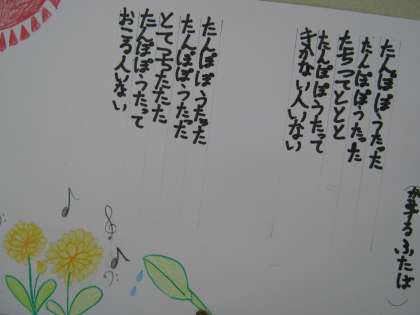 たんぽぽうたった
たんぽぽうたった
たちつてととと
たんぽぽうたって
きかない人いない
たんぽぽうたった
たんぽぽうたった
とてつちたたた
たんぽぽうたって
おこる人いない
ふたば